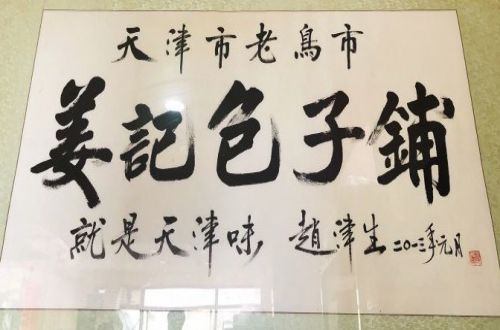 天津市老鳥市
姜記包子鋪
就是天津味 趙津生 二〇一三年元月